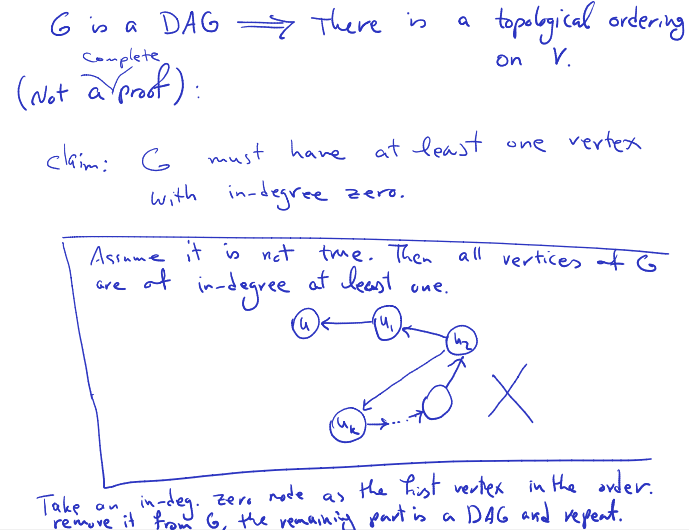 G is a DAG ⟹ There is a topological ordering
on V.
complete
(Not a proof):
claim: G must have at least one vertex
with in-degree zero.
Assume it is not true. Then all vertices of G
are of in-degree at least one.
u u₁ u₂
uₖ ...
Take an in-deg. zero node as the first vertex in the order.
remove it from G, the remaining part is a DAG and repeat.